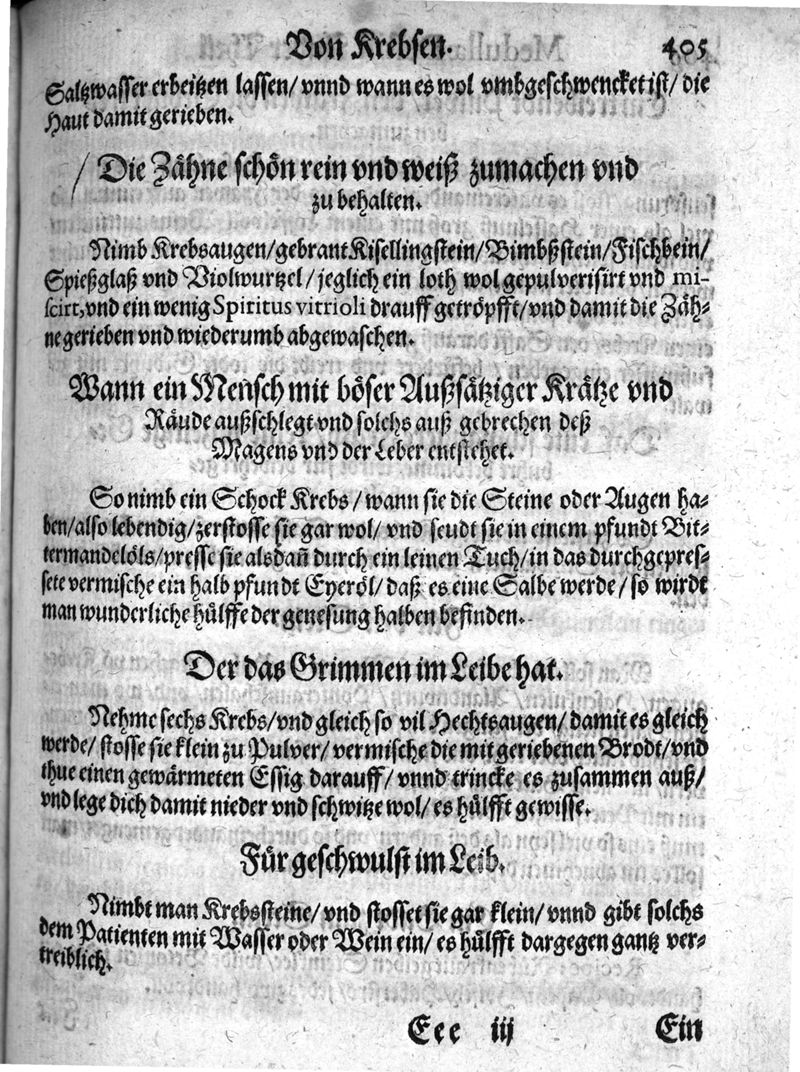 Von Krebsen. 405
Saltzwasser erbeitzen lassen/ vnnd wann es wol vmbgeschwencket ist/ die
Haut damit gerieben.
Die Zähne schön rein vnd weiß zumachen vnd
zu behalten.
Nimb Krebsaugen/ gebrant Kisellingstein/ Bimbßstein/ Fischbein/
Spießglaß vnd Violwurtzel/ jeglich ein loth wol gepulverisirt vnd mi-
scirt, vnd ein wenig Spiritus vitrioli drauff getröpfft/ vnd damit die Zäh-
ne gerieben vnd wiederumb abgewaschen.
Wann ein Mensch mit böser Außsätziger Krätze vnd
Räude außschlegt vnd solchs auß gebrechen deß
Magens vnd der Leber entstehet.
So nimb ein Schock Krebs/ wann sie die Steine oder Augen ha-
ben/ also lebendig/ zerstosse sie gar wol/ vnd seudt sie in einem pfundt Bit-
termandelöls/ presse sie alsdañ durch ein leinen Tuch/ in das durchgepres-
sete vermische ein halb pfundt Eyeröl/ daß es eine Salbe werde/ so wirdt
man wunderliche hülffe der genesung halben befinden.
Der das Grimmen im Leibe hat.
Nehme sechs Krebs/ vnd gleich so vil Hechtsaugen/ damit es gleich
werde/ stosse sie klein zu Pulver/ vermische die mit geriebenen Brodt/ vnd
thue einen gewärmeten Essig darauff/ vnnd trincke es zusammen auß/
vnd lege dich damit nieder vnd schwitze wol/ es hülfft gewisse.
Für geschwulst im Leib.
Nimbt man Krebssteine/ vnd stosset sie gar klein/ vnnd gibt solchs
dem Patienten mit Wasser oder Wein ein/ es hülfft dargegen gantz ver-
treiblich.
Eee iij Ein